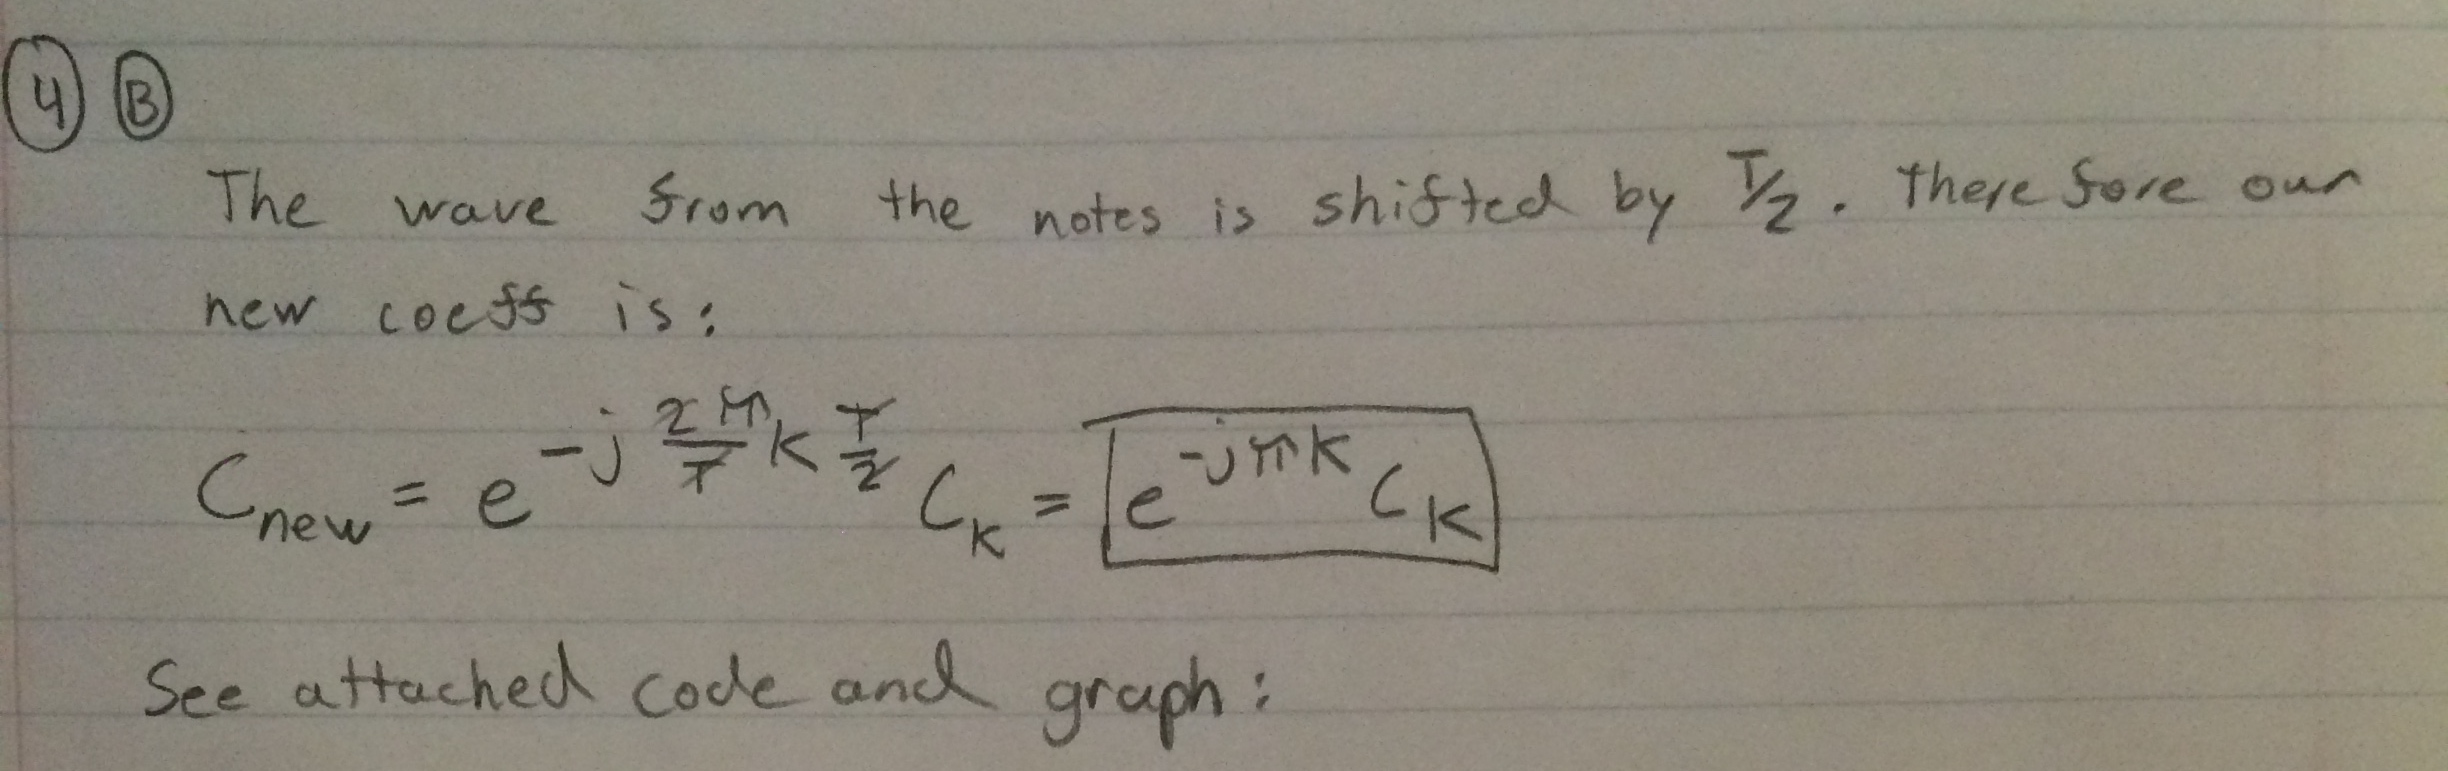 4 B
The wave from the notes is shifted by T/2. Therefore our
new coeff is:
C_new = e^{-j \frac{2π}{T} k \frac{T}{2}} C_k = e^{-jπk} C_k
See attached code and graph: